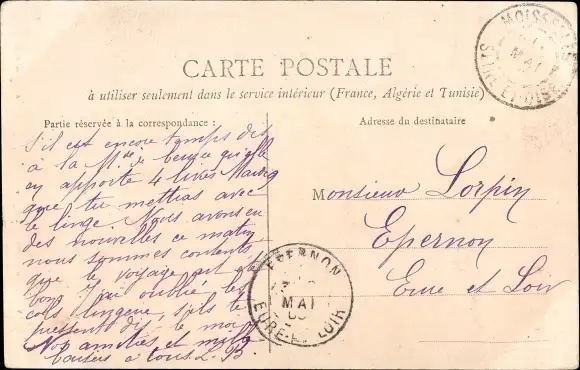 CARTE POSTALE
à utiliser seulement dans le service intérieur (France, Algérie et Tunisie)
Partie réservée à la correspondance :
S'il est encore temps dis
à la Mde de beurre qu'elle
en apporte 4 livres Mardi
que tu mettras avec
le linge. Nous avons eu
des nouvelles ce matin
nous sommes contents
que le voyage ait été
bon. J'ai oublié les
cols lingerie, s'ils te
pressent dis le moi
Nos amitiés et mille
baisers à tous L. B
Adresse du destinataire
Monsieur Lorpin
Epernon
Eure et Loir
MOISSELLES
MAI
SEINE-ET-OISE
EPERNON
MAI
EURE-ET-LOIR